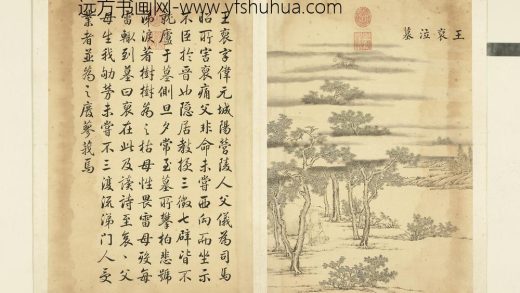 远方书画网-www.yfshuhua.com
王裒泣墓
王裒字偉元城陽營陵人父儀為司馬
昭所害裒痛父非命未嘗西向而坐示
不臣於晉也隱居教授三徵七辟皆不
就廬于墓側旦夕常至墓所攀柏悲號
涕淚著樹樹為之枯母性畏雷母歿每
雷輒到墓曰裒在此及讀詩至哀〻父
母生我劬勞未嘗不三復流涕門人受
業者並為之廢蓼莪焉